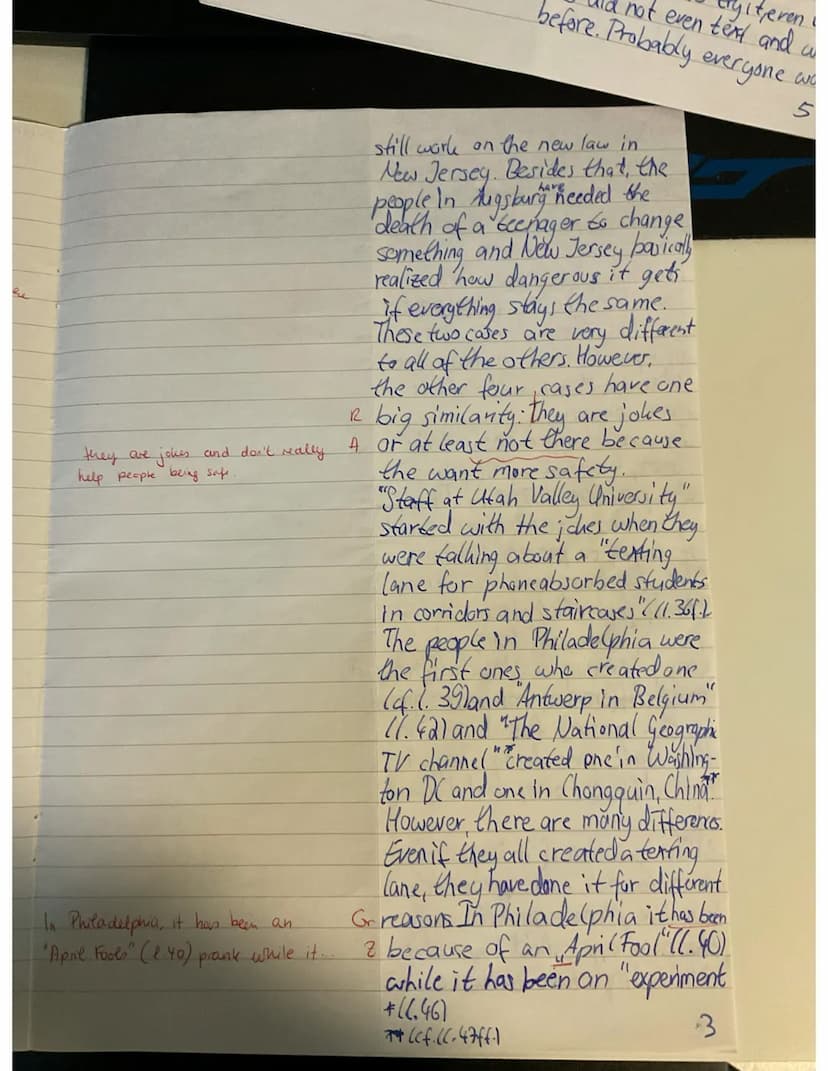 try it, even
did not even text and w
before. Probably everyone wo
5
still work on the new law in
New Jersey. Besides that, the
people in Augsburg have needed the
death of a teenager to change
something and New Jersey basically
realized how dangerous it gets
if everything stays the same.
These two cases are very different
to all of the others. However,
the other four cases have one
R big similarity: They are jokes
they are jokes and don't really A or at least not there because
help people being safe. the want more safety.
"Staff at Utah Valley University"
started with the jokes when they
were talking about a "texting
lane for phoneabsorbed students
in corridors and staircases" (ll. 36f.).
The people in Philadelphia were
the first ones who created one
(cf. l. 39) and "Antwerp in Belgium"
(l. 42) and "The National Geographic
TV channel"* created one in Washing-
ton DC and one in Chongquin, China**.
However, there are many differences.
Even if they all created a texting
lane, they have done it for different
In Philadelphia, it has been an Gr reasons. In Philadelphia it has been
"April Fools" (l. 40) prank while it... Z because of an „April Fool" (l. 40)
while it has been an "experiment
*(l. 46)
**(cf. ll. 47ff.)
3